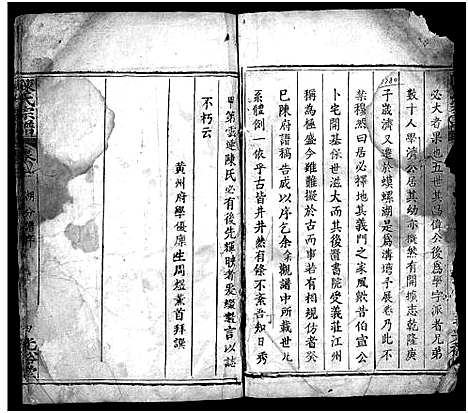 必大者果也五世其昌偉公後為學字派者兄弟
數十人學濟公居其幼亦慨然有開擴志乾隆庚
子歲濟又遷於蟆螺湖是為溝灣予展卷乃此不
禁穆然曰居必擇地其義門之家風歟昔伯宣公
卜宅開基保世滋大而其後濟書院受義莊江州
為極盛今雖難擬於古而事若有相規仿者癸
巳陳府譜稿告成以序乞余余觀譜中所載世凡
系體例一依乎古皆井井然有條不紊吾知日秀
甲第雲連陳氏必有後先輝映者爰燈以誌
不朽云
黃州府學優廩生周煜薰首拜譔
陳氏宗譜